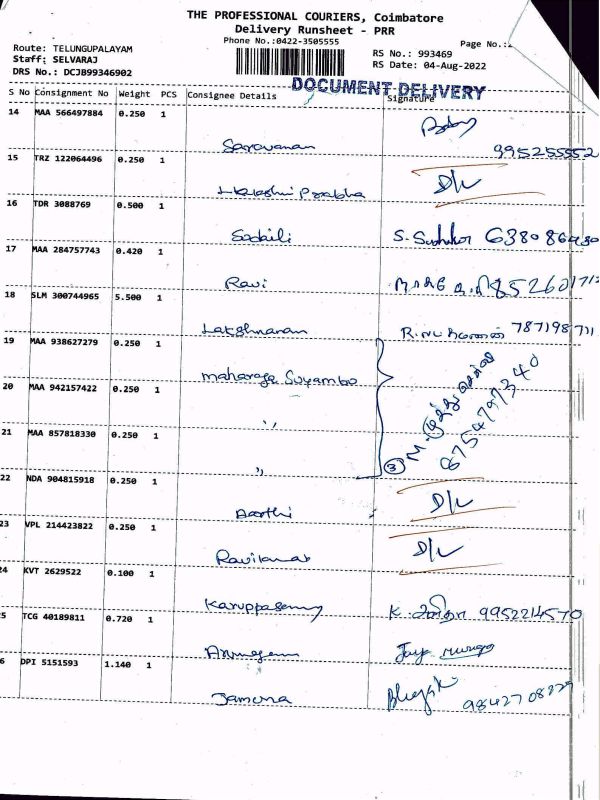 THE PROFESSIONAL COURIERS, Coimbatore
Delivery Runsheet - PRR
Phone No.:0422-3505555
Page No.:
Route: TELUNGUPALAYAM
Staff: SELVARAJ
DRS No.: DCJB99346902
RS No.: 993469
RS Date: 04-Aug-2022
DOCUMENT DELIVERY
S No Consignment No Weight PCS Consignee Details Signature
14 MAA 566497884 0.250 1
Saravanan 995255552
15 TRZ 122064496 0.250 1
Prabha D/L
16 TDR 3088769 0.500 1
S.
17 MAA 284757743 0.420 1
Ravi
18 SLM 300744965 5.500 1
Lakshmanan 787198711
19 MAA 938627279 0.250 1
maharaja Suyambo
20 MAA 942157422 0.250 1
,,
21 MAA 857818330 0.250 1
,, 3
8754797340
22 NDA 904815918 0.250 1
Aarthi D/L
23 VPL 214423822 0.250 1
D/L
24 KVT 2629522 0.100 1
Karuppasamy K. 9952214570
5 TCG 40189811 0.720 1
Arumugam
6 DPI 5151593 1.140 1
Jamuna